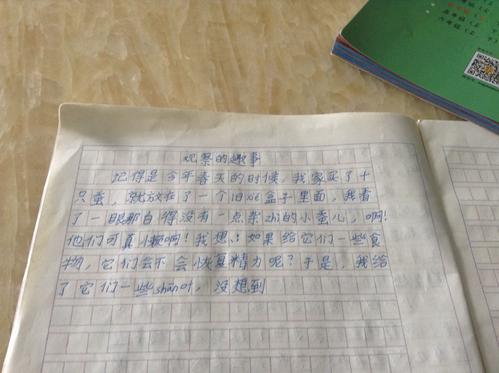 观察的趣事
记得是今年春天的时候,我家买了十
只蚕,就放在了一个旧盒子里面,我看
了一眼那白得没有一点杂zhi的小蚕儿,啊!
他们可真懒啊!我想:如果给它们一些食
物,它们会不会恢复精力呢?于是,我给
了它们一些,没想到